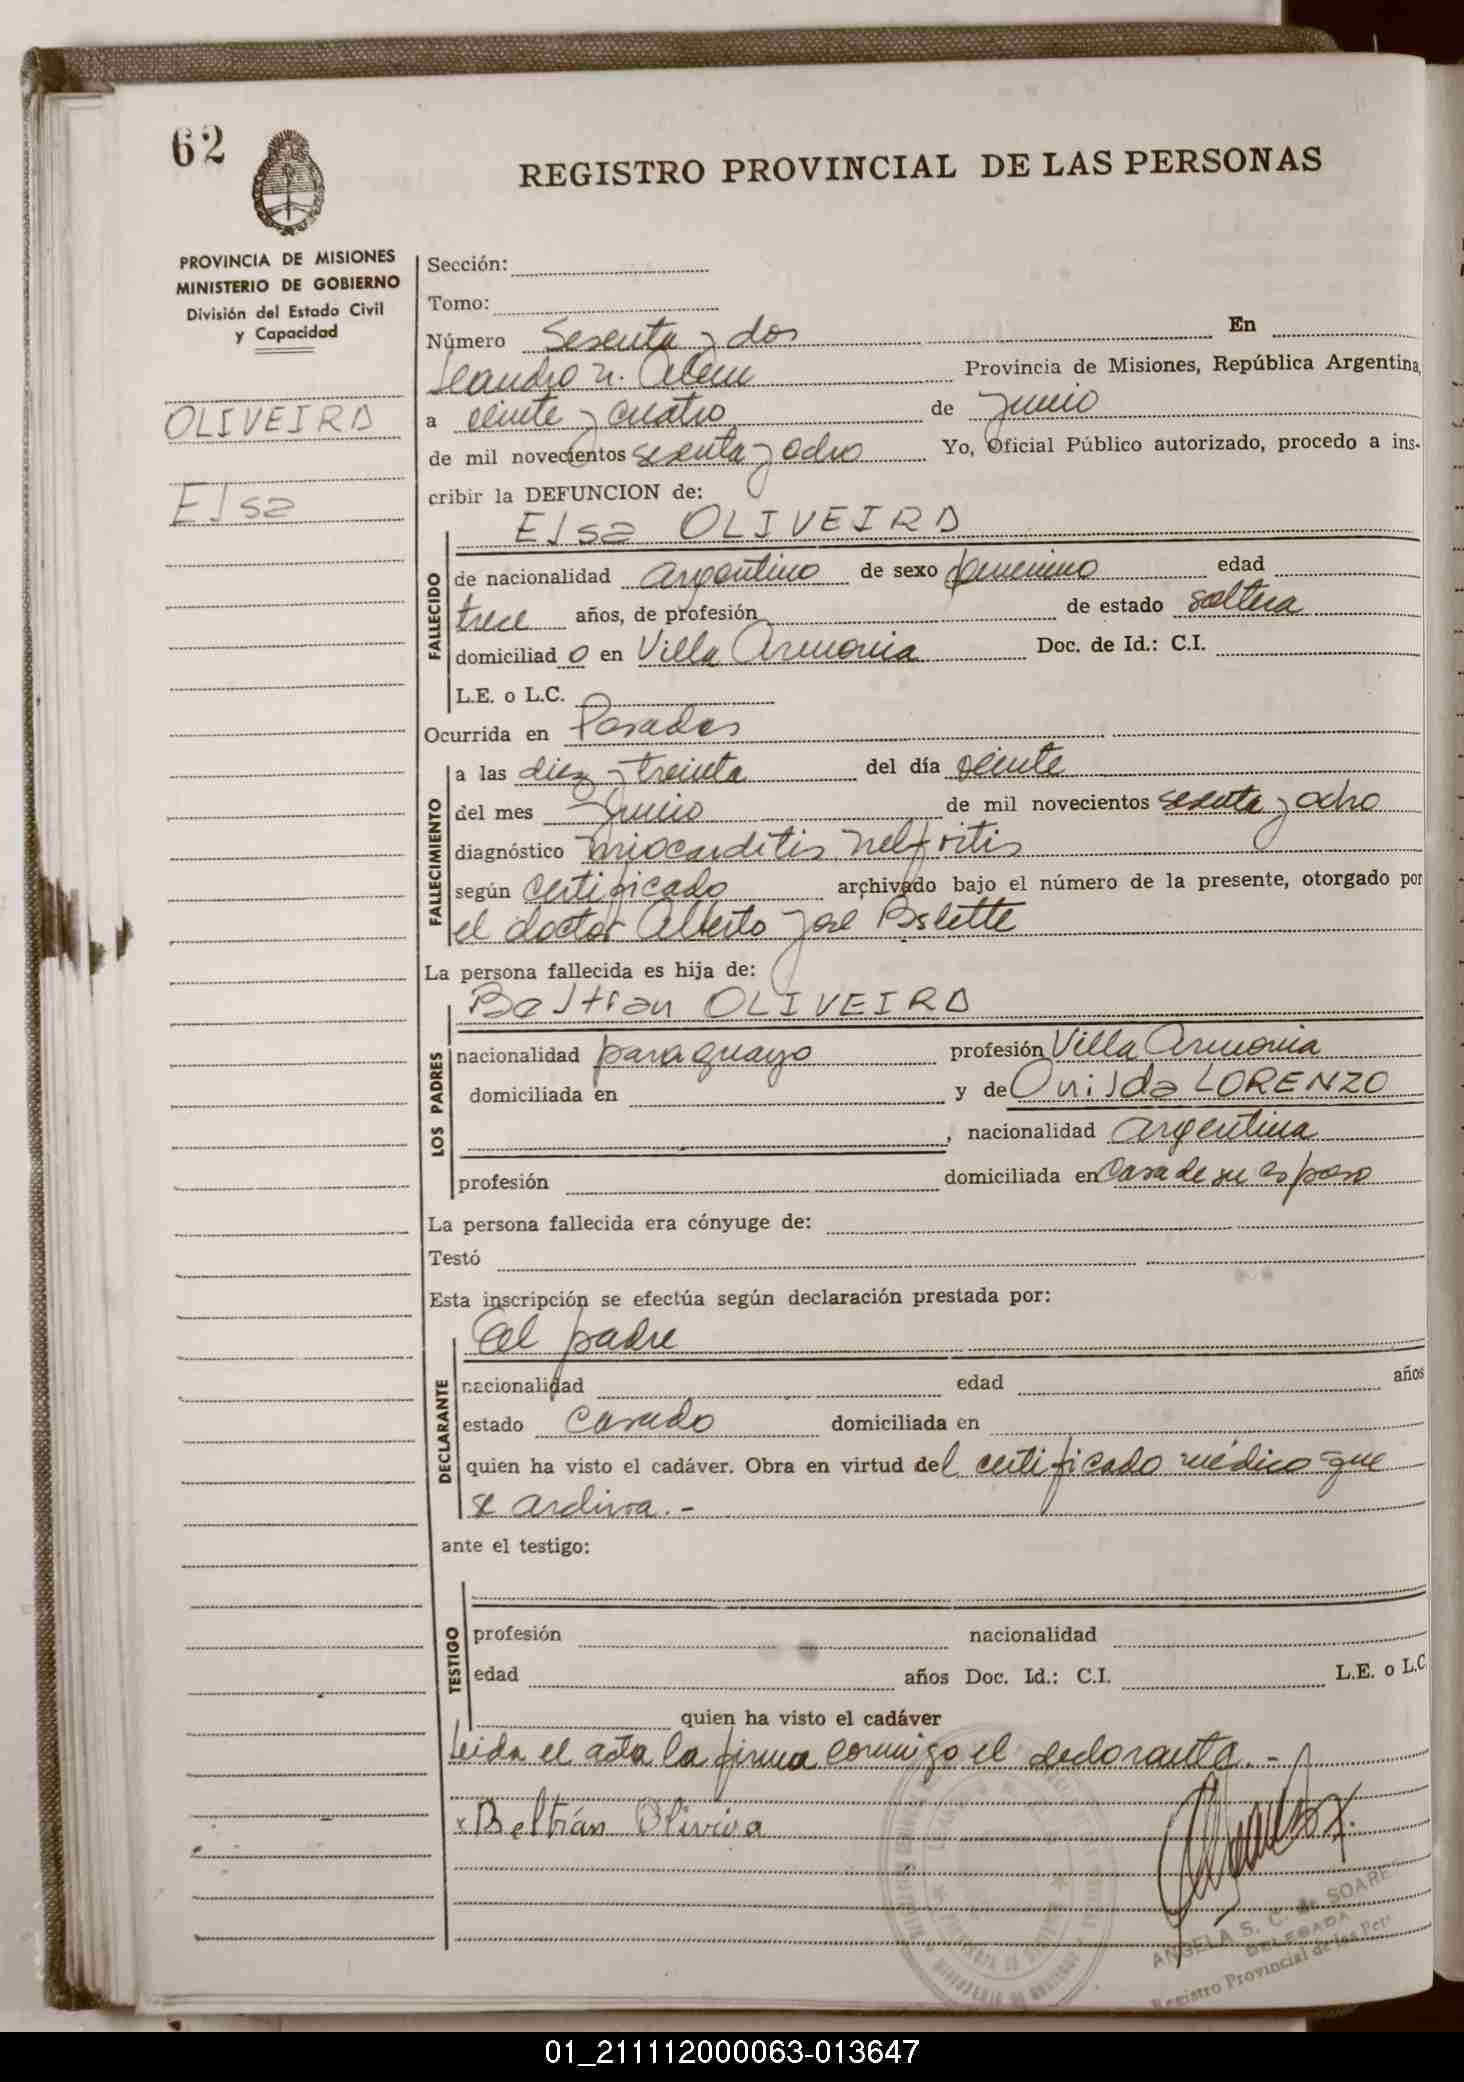 62
REGISTRO PROVINCIAL DE LAS PERSONAS
PROVINCIA DE MISIONES
MINISTERIO DE GOBIERNO
División del Estado Civil
y Capacidad
OLIVEIRA
Elsa
Sección:
Tomo:
Número Sesenta y dos En
Leandro N. Alem Provincia de Misiones, República Argentina,
a veinte y cuatro de junio
de mil novecientos sesenta y ocho Yo, Oficial Público autorizado, procedo a ins-
cribir la DEFUNCION de:
Elsa OLIVEIRA
FALLECIDO
de nacionalidad argentino de sexo femenino edad
trece años, de profesión de estado soltera
domiciliado en Villa Armonia Doc. de Id.: C.I.
L.E. o L.C.
Ocurrida en Posadas
FALLECIMIENTO
a las diez y treinta del día veinte
del mes junio de mil novecientos sesenta y ocho
diagnóstico miocarditis nelfritis
según certificado archivado bajo el número de la presente, otorgado por
el doctor Alberto José
La persona fallecida es hija de:
Beltran OLIVEIRA
LOS PADRES
nacionalidad paraguayo profesión Villa Armonia
domiciliada en y de Onilda LORENZO
, nacionalidad argentina
profesión domiciliada en Casa de su esposo
La persona fallecida era cónyuge de:
Testó
Esta inscripción se efectúa según declaración prestada por:
El padre
DECLARANTE
nacionalidad edad años
estado casado domiciliada en
quien ha visto el cadáver. Obra en virtud del certificado médico que
se archiva.-
ante el testigo:
TESTIGO
profesión nacionalidad
edad años Doc. Id.: C.I. L.E. o L.C
quien ha visto el cadáver
Leida el acta la firma conmigo el declarante.-
x Beltrán Olivira
ANGELA S. C. de SOARE
DELEGADA
Registro Provincial de las Per
01_211112000063-013647